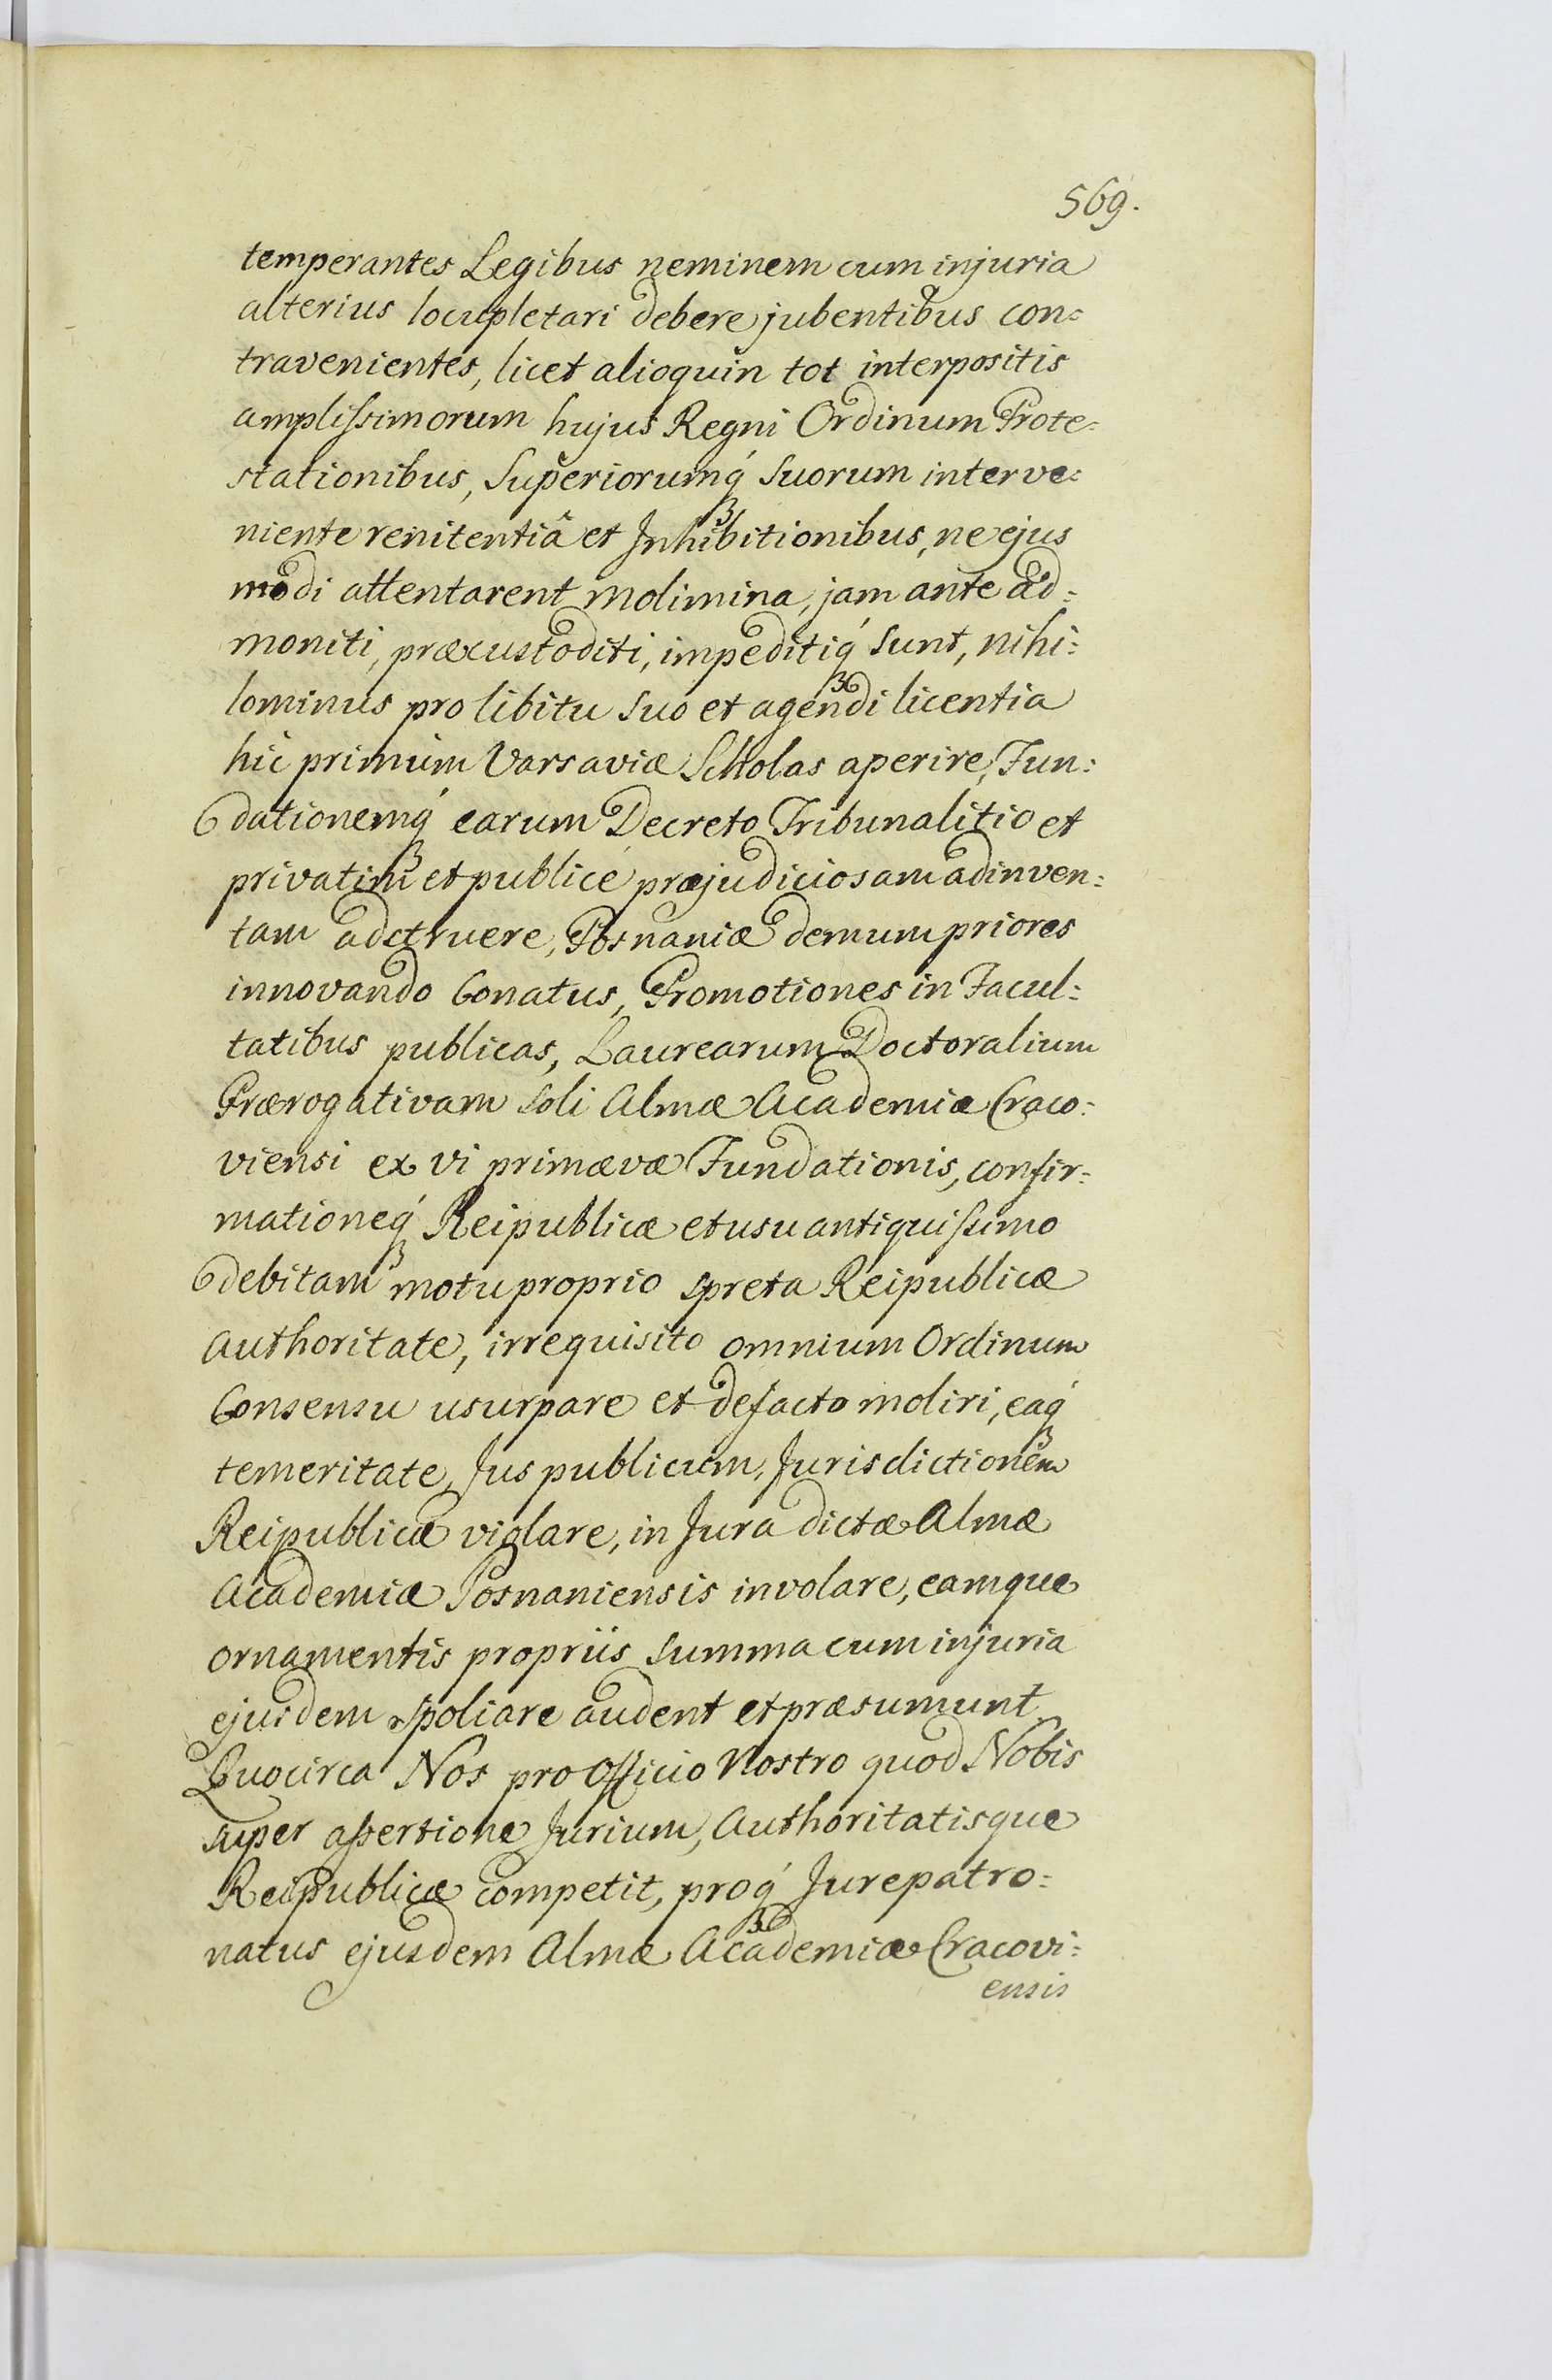 569.
temperantes Legibus neminem cum injuria
alterius locupletari debere jubentibus con=
travenientes, licet alioquin tot interpositis
amplissimorum hujus Regni Ordinum Prote=
stationibus, Superiorumq́ꝫ Suorum interve=
niente renitentiâ et Inhibitionibus, ne ejus
modi attentarent molimina, jam ante ad=
moniti, præcustoditi, impeditiq́ꝫ sunt, nihi=
lominus pro libitu suo et agendi licentia
hic primum Varsaviæ Scholas aperire, Fun=
dationemq́ꝫ earum Decreto Tribunalitio et
privatim et publicé præjudiciosam adinven=
tam adstruere, Posnaniæ demum priores
innovando Conatus, Promotiones in Facul=
tatibus publicas, Laurearum Doctoralium
Prærogativam soli Almæ Academiæ Craco=
viensi ex vi primævæ Fundationis, confir=
mationeq́ꝫ Reipublicæ et usu antiquissimo
debitam motu proprio spreta Reipublicæ
Authoritate, irrequisito omnium Ordinum
Consensu usurpare et de facto moliri, eaq́ꝫ
temeritate, Jus publicum, Jurisdictionem
Reipublicæ violare, in Jura dictæ Almæ
Academiæ Posnaniensis involare, eamque
ornamentis propriis summa cum injuria
ejusdem spoliare audent et præsumunt.
Quocirca Nos pro Officio Nostro quod Nobis
super assertione Jurium, Authoritatisque
Reipublicæ competit, proq́ꝫ Jure patro=
natus ejusdem Almæ Academiæ Cracovi=
ensis